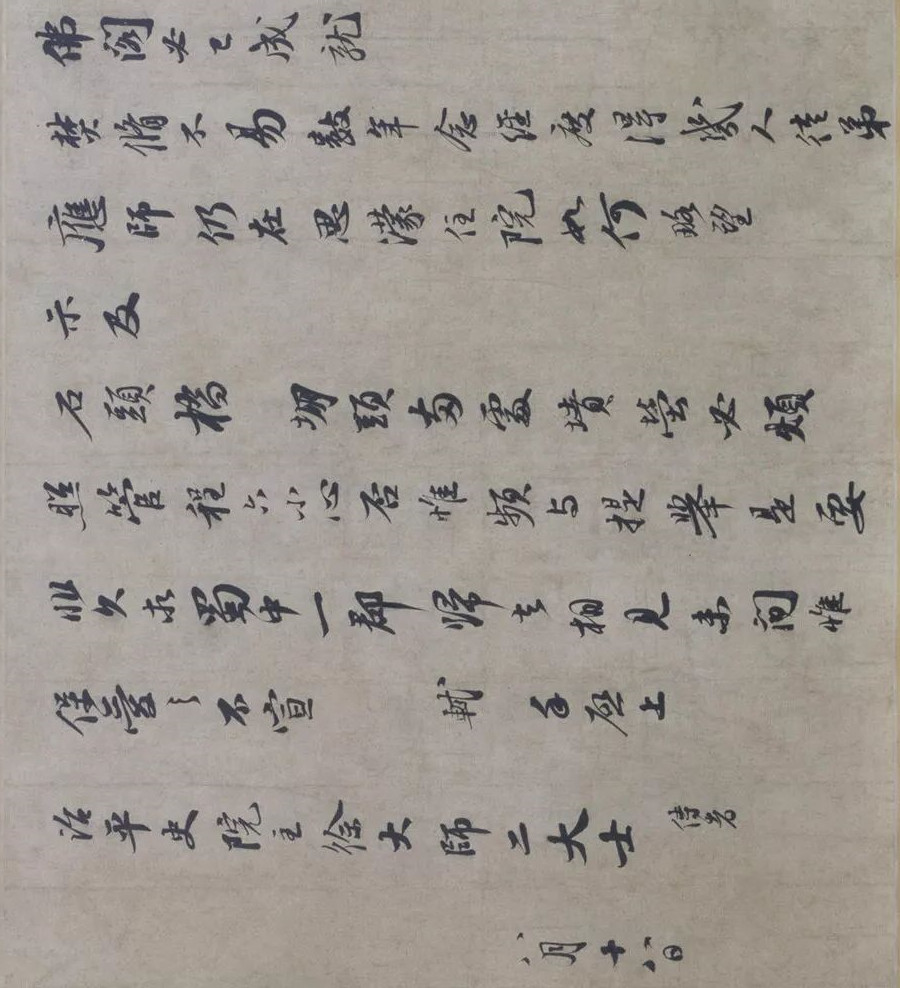 佛閣必已成就
焚脩不易數年念經度得幾人徒弟
應師仍在思濛住院如何略望
示及
石頭橋 堋頭兩處墳塋必煩
照管程六小心否惟頻与提舉是要
非久求蜀中一郡歸去相見未間惟
保愛之不宣 軾 手啓上
治平史院主徐大師二大士 侍者
八月十八日